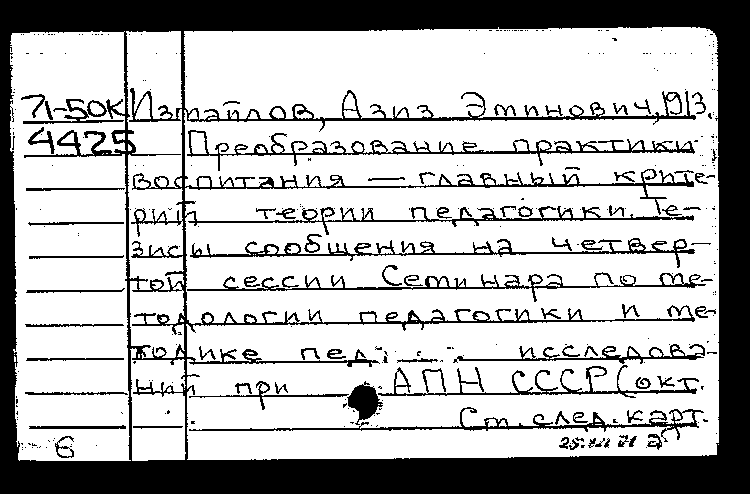 71-50К Измайлов, Азиз Эминович, 1913.
4425 Преобразование практики
воспитания — главный крите-
рий теории педагогики. Те-
зисы сообщения на четвер-
той сессии Семинара по ме-
тодологии педагогики и ме-
тодике пед. исследова-
ний при АПН СССР (окт.
Ст. след. карт.
6